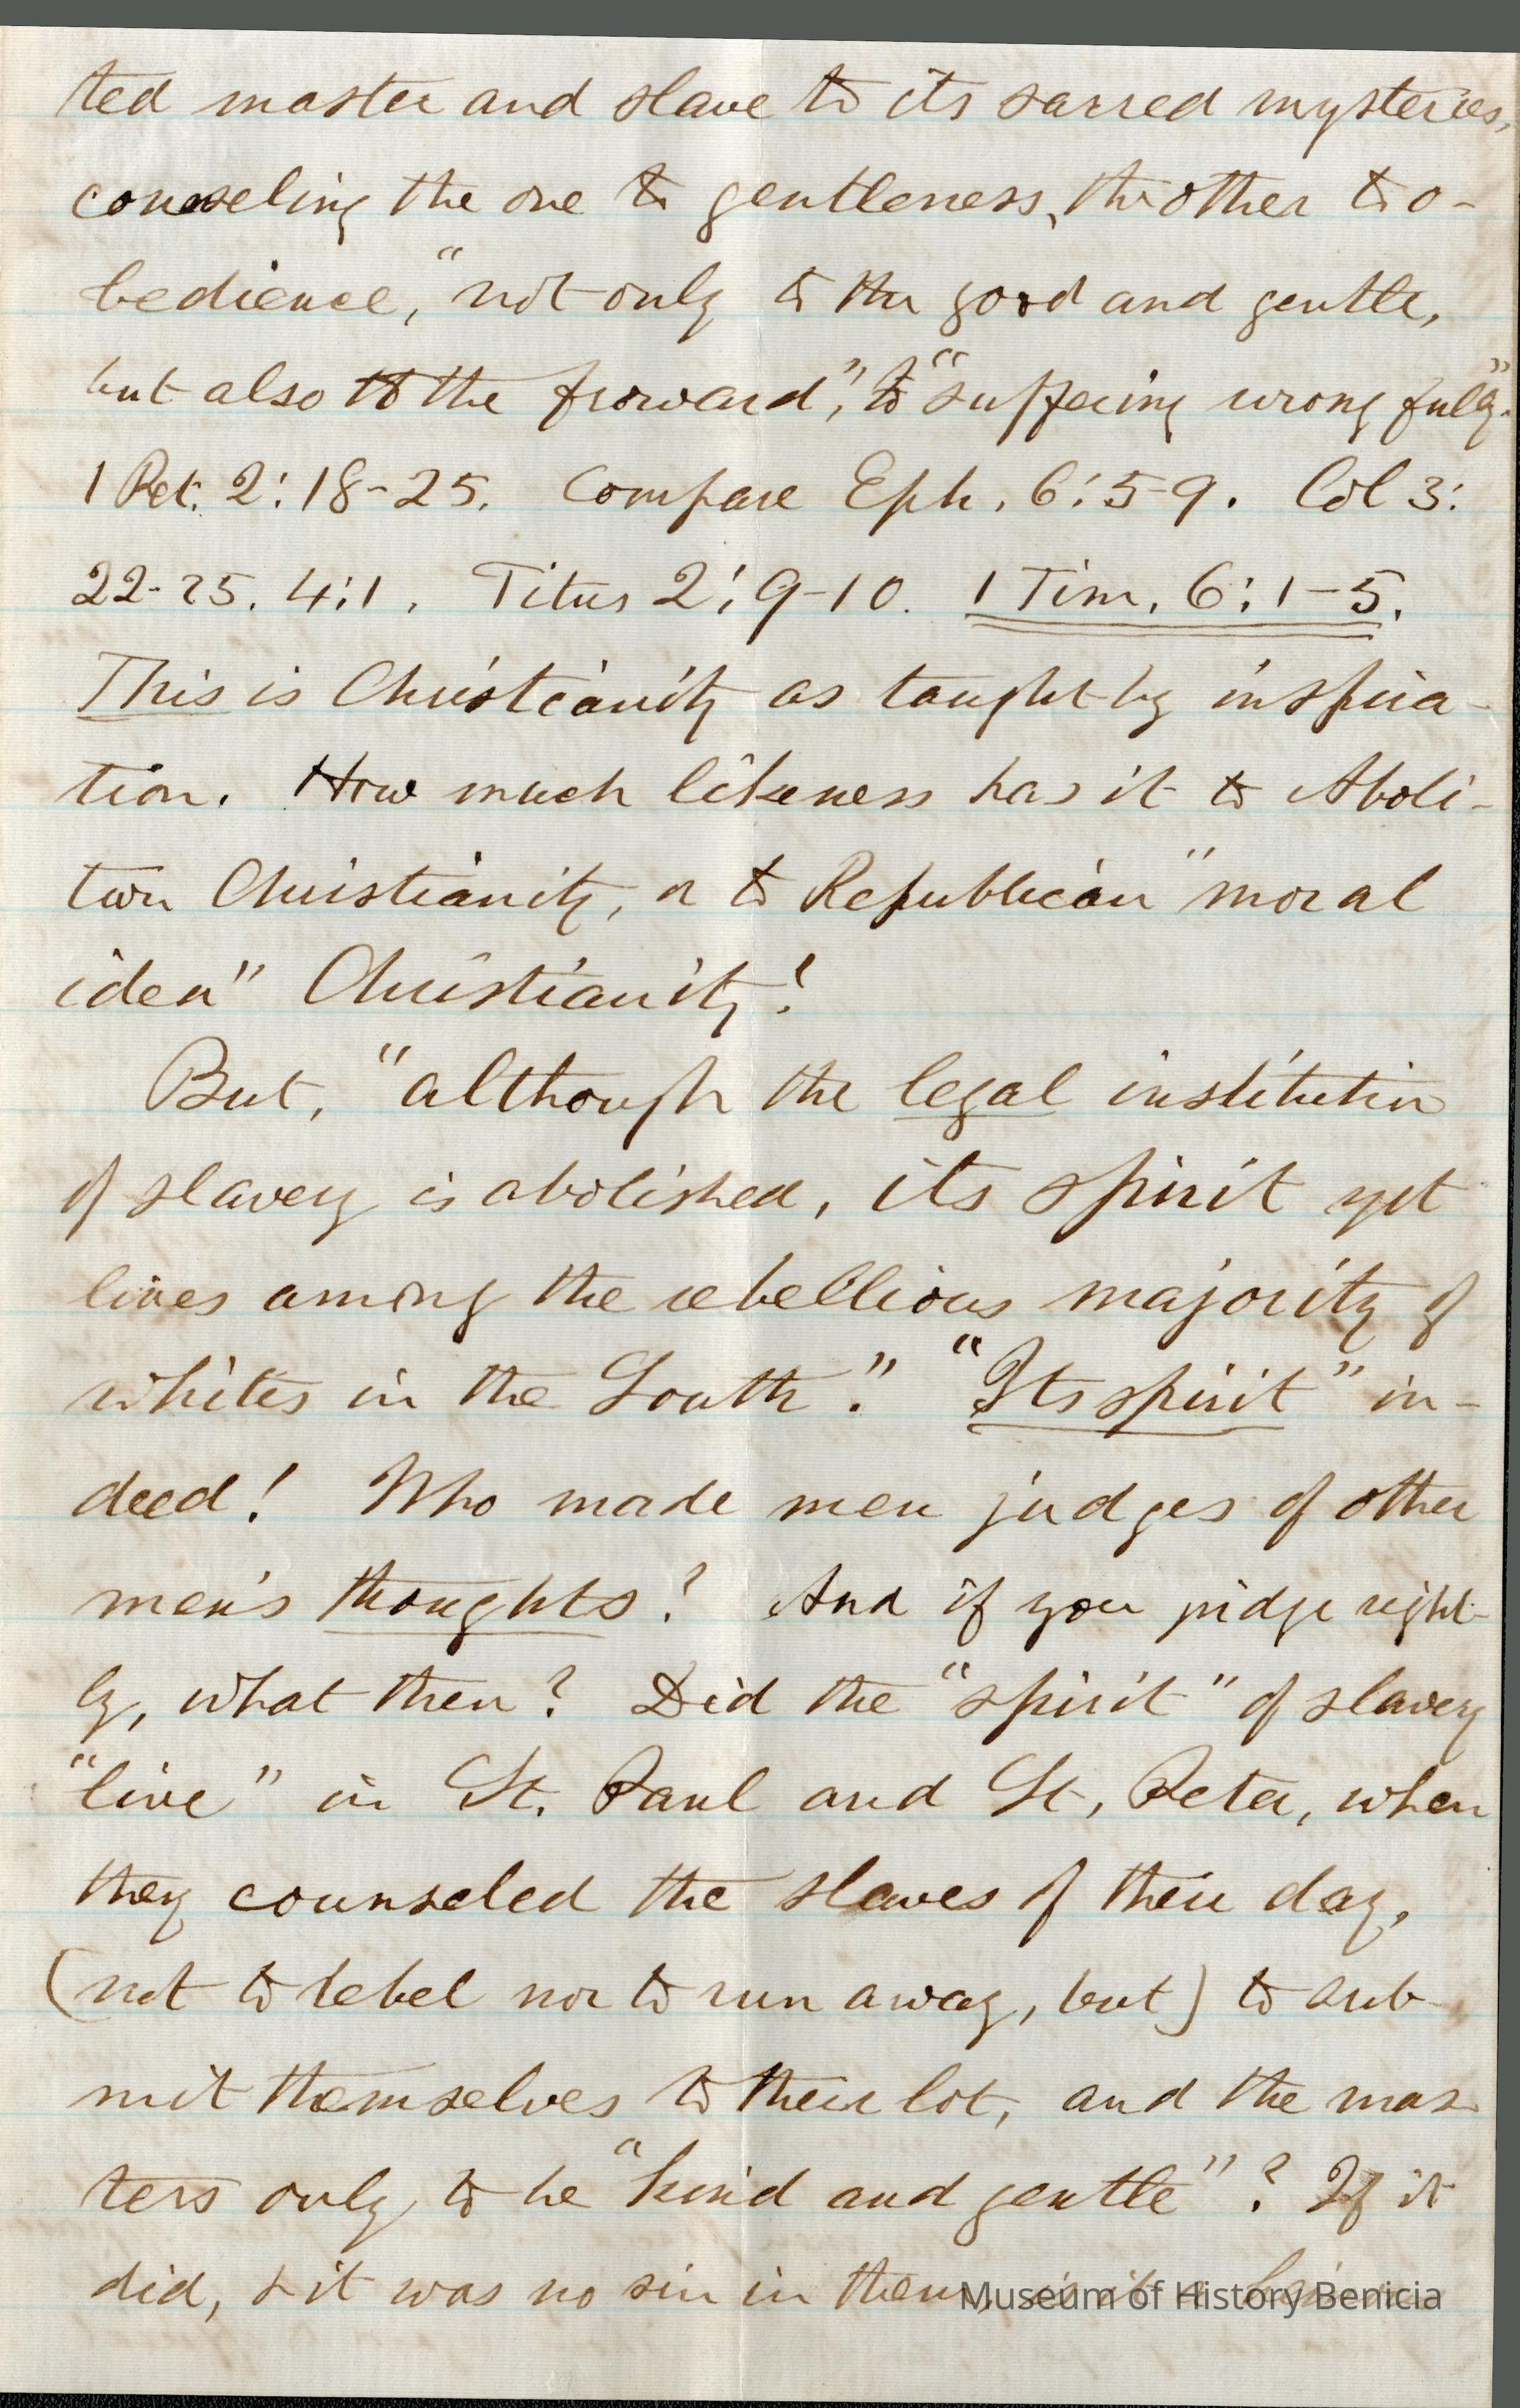 ted master and slave to its sacred mysteries,
counseling the one to gentleness, the other to o-
bedience, "not only to the good and gentle,
but also to the froward", to "suffering wrongfully".
1 Pet. 2:18-25. Compare Eph. 6:5-9. Col 3:
22-25. 4:1. Titus 2:9-10. 1 Tim. 6:1-5.
This is Christianity as taught by inspira-
tion. How much likeness has it to Aboli-
tion Christianity, or to Republican "moral
idea" Christianity?
But, "although the legal institution
of slavery is abolished, its spirit yet
lives among the rebellious majority of
whites in the South." "Its spirit" in-
deed! Who made men judges of other
men's thoughts? And if you judge right-
ly, what then? Did the "spirit" of slavery
"live" in St. Paul and St. Peter, when
they counseled the slaves of their day,
(not to rebel nor to run away, but) to sub-
mit themselves to their lot, and the mas-
ters only to be "kind and gentle"? If it
did, & it was no sin in them,
Museum of History Benicia